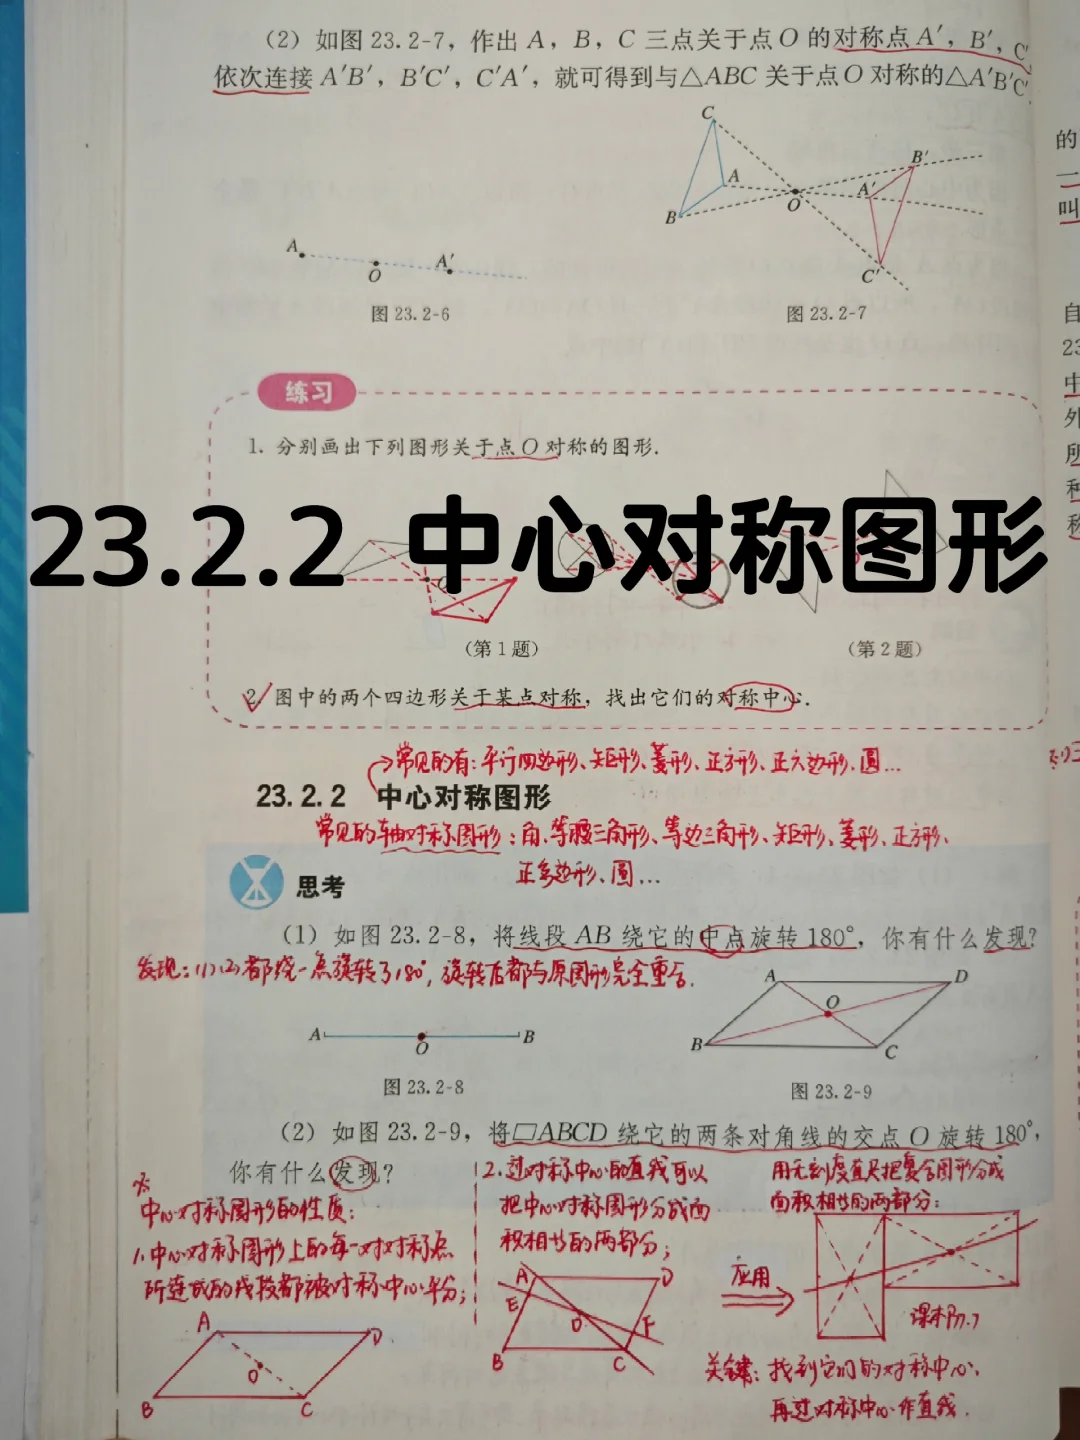 (2) 如图 23.2-7，作出 A，B，C 三点关于点 O 的对称点 A′，B′，C′
依次连接 A′B′，B′C′，C′A′，就可得到与△ABC 关于点 O 对称的△A′B′C′.
C
B′
A
A′
O
B
C′
A
O
A′
图 23.2-6
图 23.2-7
的
一
叫
自
23
中
外
所
种
称
练习
1. 分别画出下列图形关于点 O 对称的图形.
23.2.2 中心对称图形
(第 1 题)
(第 2 题)
2. 图中的两个四边形关于某点对称，找出它们的对称中心.
→常见的有：平行四边形、矩形、菱形、正方形、正六边形、圆…
23.2.2 中心对称图形
常见的轴对称图形：角、等腰三角形、等边三角形、矩形、菱形、正方形、
正多边形、圆…
思考
(1) 如图 23.2-8，将线段 AB 绕它的中点旋转 180°，你有什么发现?
发现：(1)(2)都绕一点旋转了180°，旋转后都与原图形完全重合.
A
D
O
B
C
A
O
B
图 23.2-8
图 23.2-9
(2) 如图 23.2-9，将□ABCD 绕它的两条对角线的交点 O 旋转 180°，
你有什么发现?
※
中心对称图形的性质：
1.中心对称图形上的每一对对称点
所连成的线段都被对称中心平分；
A
D
O
B
C
2.过对称中心的直线可以
把中心对称图形分成面
积相当的两部分；
A
D
E
O
F
B
C
用无刻度直尺把复合图形分成
面积相当的两部分：
应用
课本P71.7
关键：找到它们的对称中心，
再过对称中心作直线.